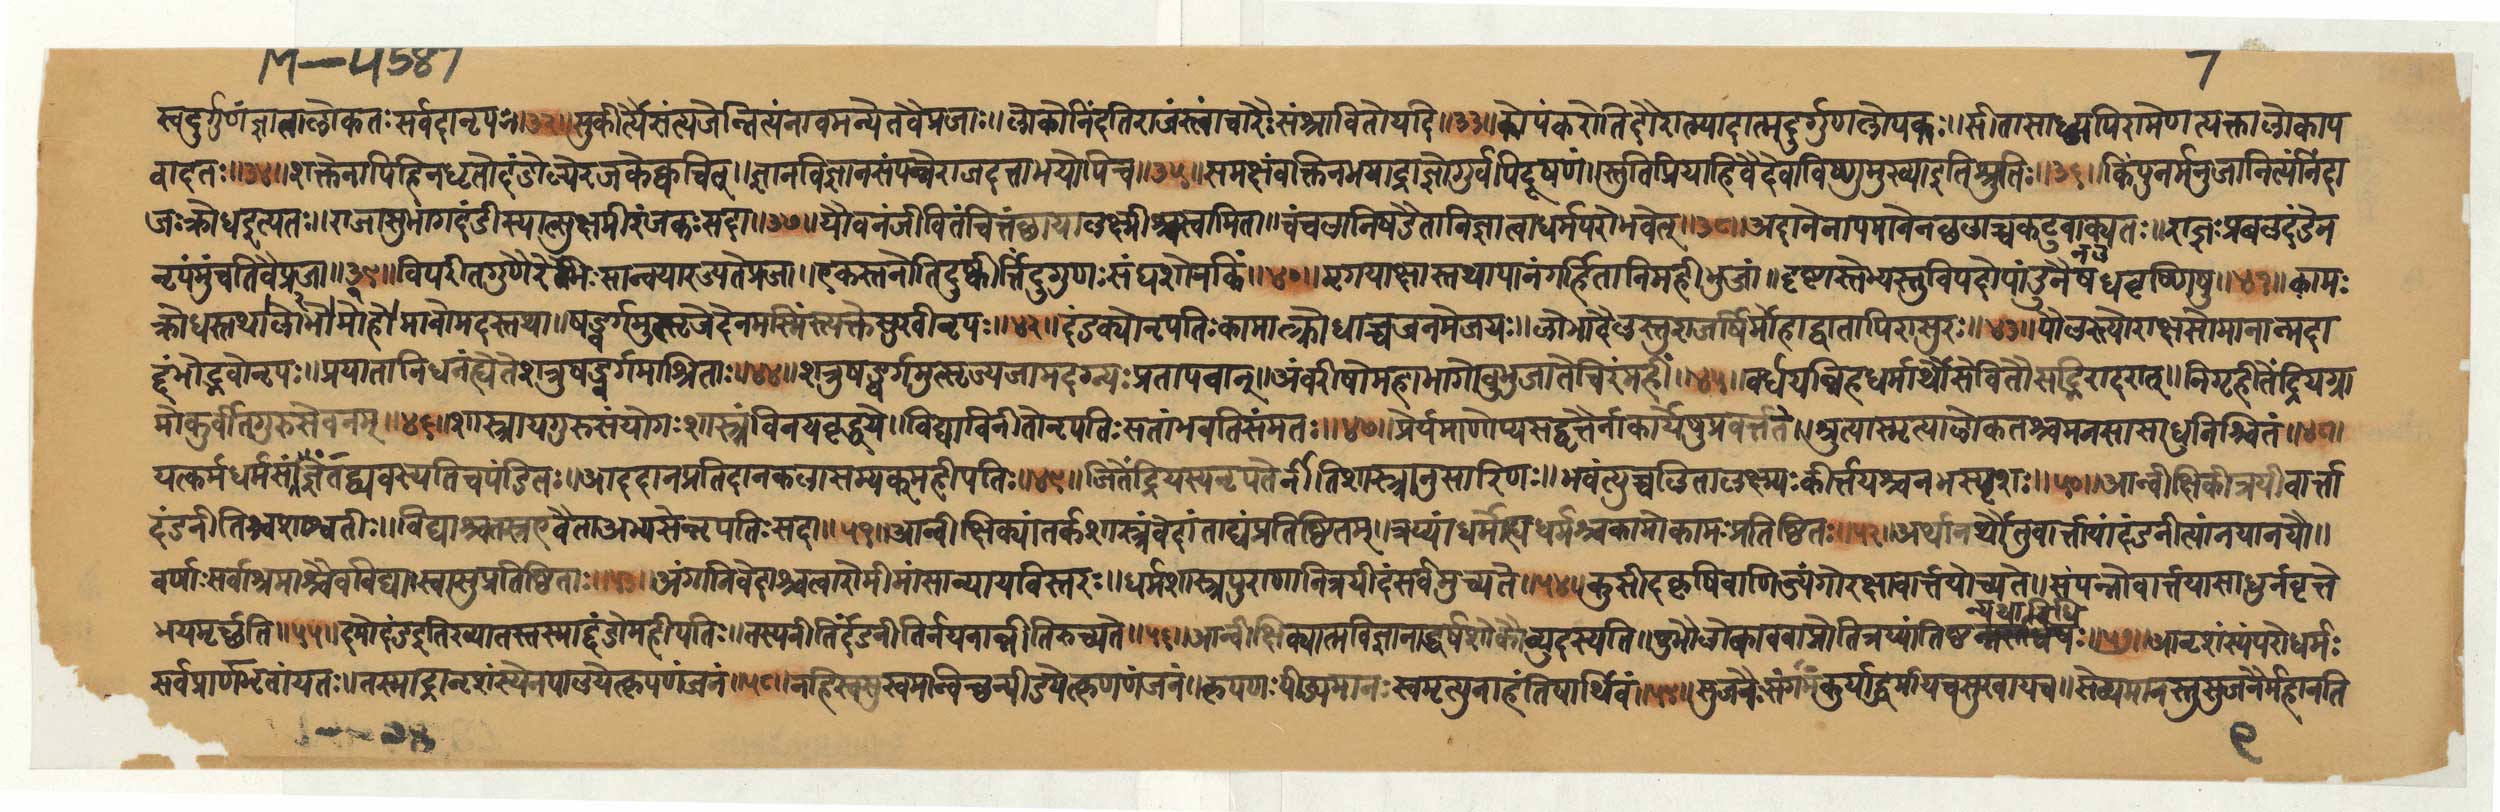 M-4587
7
स्वदुर्गुणंज्ञात्वालोकतःसर्वदानृपः॥३२॥सुकीर्त्यैसंत्यजेन्नित्यंनावमन्येतवैप्रजाः॥लोकोनिंदतिराजंस्त्वांचारैःसंश्रावितोयदि॥३३॥कोपंकरोतिदौरात्म्यादात्मदुर्गुणलोपकः॥सीतासाध्व्यपिरामेणत्यक्तालोकाप
वादतः॥३४॥शक्तेनापिहिनधृतोदंडोल्पेरजकेक्वचित्॥ज्ञानविज्ञानसंपन्नेराजदत्ताभयोपिच॥३५॥समक्षंवक्तिनभयाद्राज्ञोगुर्वपिदूषणं॥स्तुतिप्रियाहिवैदेवाविष्णुमुख्याइतिश्रुतिः॥३६॥किंपुनर्मनुजानित्यंनिंदा
जःक्रोधइत्यतः॥राजासुभागदंडीस्यात्सुक्षमीरंजकःसदा॥३७॥यौवनंजीवितंचित्तंछायालक्ष्मीश्चस्वामिता॥चंचलानिषडैतानिज्ञात्वाधर्मपरोभवेत्॥३८॥अदानेनापमानेनछलाच्चकटुवाक्यतः॥राज्ञःप्रबलदंडेन
नृपंमुंचतिवैप्रजा॥३९॥विपरीतगुणैरेभिःसान्वयारज्यतेप्रजा॥एकस्तनोतिदुष्कीर्त्तिंदुर्गुणःसंघशोनकिं॥४०॥मृगयाक्षास्तथापानंगर्हितानिमहीभुजां॥दृष्टास्तेभ्यस्तुविपदोपांडुनैषधवृष्णिषु॥४१॥कामः
क्रोधस्तथालोभोमोहोमानोमदस्तथा॥षड्वर्गमुत्सृजेदेनमस्मिंस्त्यक्तेसुखीनृपः॥४२॥दंडक्योनृपतिःकामात्क्रोधाच्चजनमेजयः॥लोभादैलस्तुराजर्षिर्मोहाद्वातापिरासुरः॥४३॥पौलस्त्योराक्षसोमानान्मदा
द्दंभोद्भवोनृपः॥प्रयातानिधनंह्येतेशत्रुषड्वर्गमाश्रिताः॥४४॥शत्रुषड्वर्गमुत्सृज्यजामदग्न्यःप्रतापवान्॥अंबरीषोमहाभागोबुभुजातेचिरंमहीं॥४५॥वर्धयन्निहधर्मार्थौसेवितौसद्भिरादरात्॥निगृहीतेंद्रियग्रा
मोकुर्वीतगुरुसेवनम्॥४६॥शास्त्रायगुरुसंयोगःशास्त्रंविनयवृद्धये॥विद्याविनीतोनृपतिःसतांभवतिसंमतः॥४७॥प्रेर्यमाणोप्यसद्वृत्तैर्नाकार्येषुप्रवर्त्तते॥श्रुत्यास्मृत्यालोकतश्चमनसासाधुनिश्चितं॥४८॥
यत्कर्मधर्मसंज्ञितद्व्यवस्यतिचपंडितः॥आददानप्रतिदानकलासम्यक्महीपतिः॥४९॥जितेंद्रियस्यनृपतेर्नीतिशास्त्रानुसारिणः॥भवंत्युच्चलिताल्क्ष्म्यःकीर्त्तयश्चनभस्पृशः॥५०॥आन्वीक्षिकीत्रयीवार्त्ता
दंडनीतिश्चशाश्वतीः॥विद्याश्चतस्रएवैताअभ्यसेन्नृपतिःसदा॥५१॥आन्वीक्षिक्यांतर्कशास्त्रंवेदांताद्यंप्रतिष्ठितम्॥त्रय्यांधर्मोह्यधर्मश्चकामोकामःप्रतिष्ठितः॥५२॥अर्थानर्थौतुवार्त्तायांदंडनीत्यांनयानयौ॥
वर्णाःसर्वाश्रमाश्चैवविद्यास्वासुप्रतिष्ठिताः॥५३॥अंगानिवेदाश्चत्वारोमीमांसान्यायविस्तरः॥धर्मशास्त्रपुराणानित्रयीदंसर्वमुच्यते॥५४॥कुसीदकृषिवाणिज्यंगोरक्षावार्त्तयोच्यते॥संपन्नोवार्त्तयासाधुर्नवृत्ते
भयमृच्छति॥५५॥दमोदंडइतिख्यातस्तस्माद्दंडोमहीपतिः॥तस्यनीतिर्दंडनीतिर्नयनान्नीतिरुच्यते॥५६॥आन्वीक्षिक्यात्मविज्ञानाद्धर्षशोकौव्युदस्यति॥उभौलोकाववाप्नोतित्रय्यांतिष्ठन्यथाविधि॥५७॥आनृशंस्यंपरोधर्मः
सर्वप्राणभृतांयतः॥तस्माद्राजानृशंस्येनपालयेत्कृपणंजनं॥५८॥नहिस्वसुखमन्विच्छन्पीडयेत्कृपणंजनं॥कृपणःपीड्यमानःस्वमृत्युनाहंतिपार्थिवं॥५९॥सुजनैःसंगमंकुर्याद्धर्मायचसुखायच॥सेव्यमानस्तुसुजनैर्महानति
९